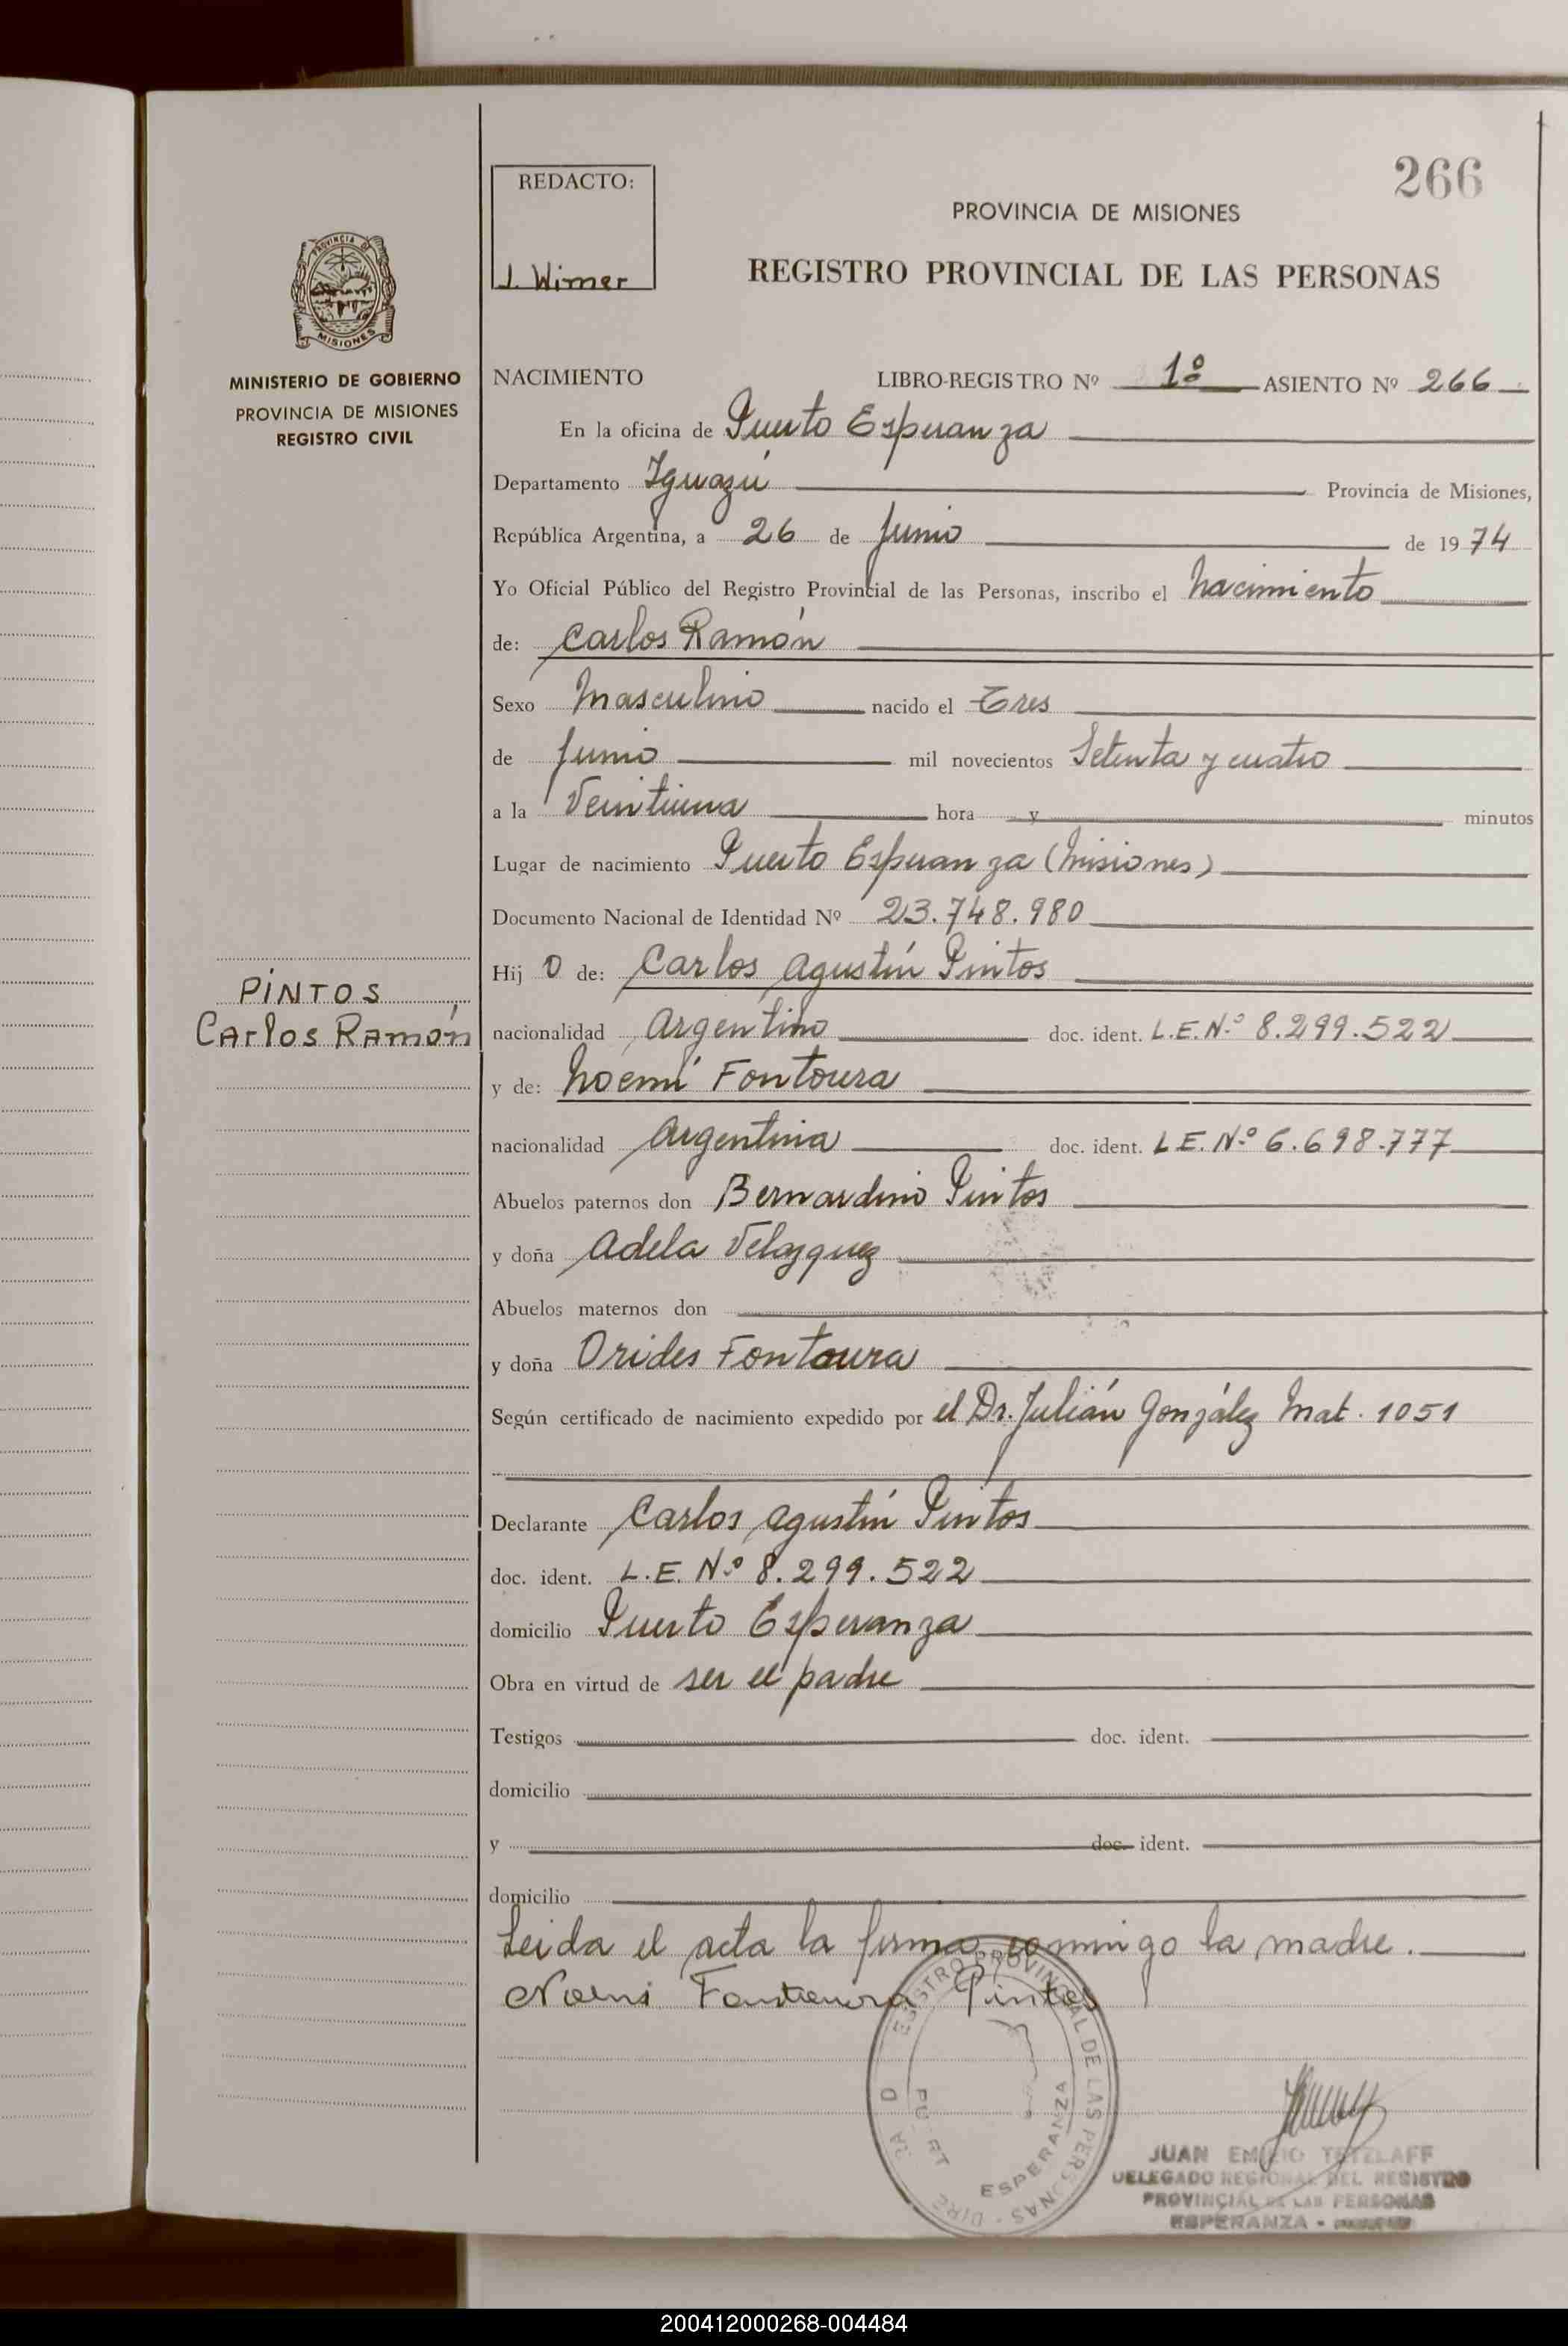 266
REDACTO:
J. Wimer
PROVINCIA DE MISIONES
REGISTRO PROVINCIAL DE LAS PERSONAS
PROVINCIA DE
MISIONES
MINISTERIO DE GOBIERNO
PROVINCIA DE MISIONES
REGISTRO CIVIL
NACIMIENTO LIBRO-REGISTRO Nº 1º ASIENTO Nº 266
En la oficina de Puerto Esperanza
Departamento Iguazú Provincia de Misiones,
República Argentina, a 26 de Junio de 1974
Yo Oficial Público del Registro Provincial de las Personas, inscribo el Nacimiento
de: Carlos Ramón
Sexo Masculino nacido el Tres
de Junio mil novecientos Setenta y cuatro
a la Veintiuna hora y minutos
Lugar de nacimiento Puerto Esperanza (Misiones)
Documento Nacional de Identidad Nº 23.748.980
Hij o de: Carlos Agustín Pintos
PINTOS
Carlos Ramón
nacionalidad Argentino doc. ident. L.E.N.º 8.299.522
y de: Noemí Fontoura
nacionalidad Argentina doc. ident. L.E.N.º 6.698.777
Abuelos paternos don Bernardino Pintos
y doña Adela Velazquez
Abuelos maternos don
y doña Orides Fontoura
Según certificado de nacimiento expedido por el Dr. Julián González Mat. 1051
Declarante Carlos Agustín Pintos
doc. ident. L.E. N.º 8.299.522
domicilio Puerto Esperanza
Obra en virtud de ser el padre
Testigos doc. ident.
domicilio
y doc. ident.
domicilio
Leida el acta la firma conmigo la madre.
Noemi Fontoura Pintos
REGISTRO PROVINCIAL DE LAS PERSONAS
ESPERANZA
JUAN EMILIO TETZLAFF
DELEGADO REGIONAL DEL REGISTRO
PROVINCIAL DE LAS PERSONAS
ESPERANZA -
200412000268-004484